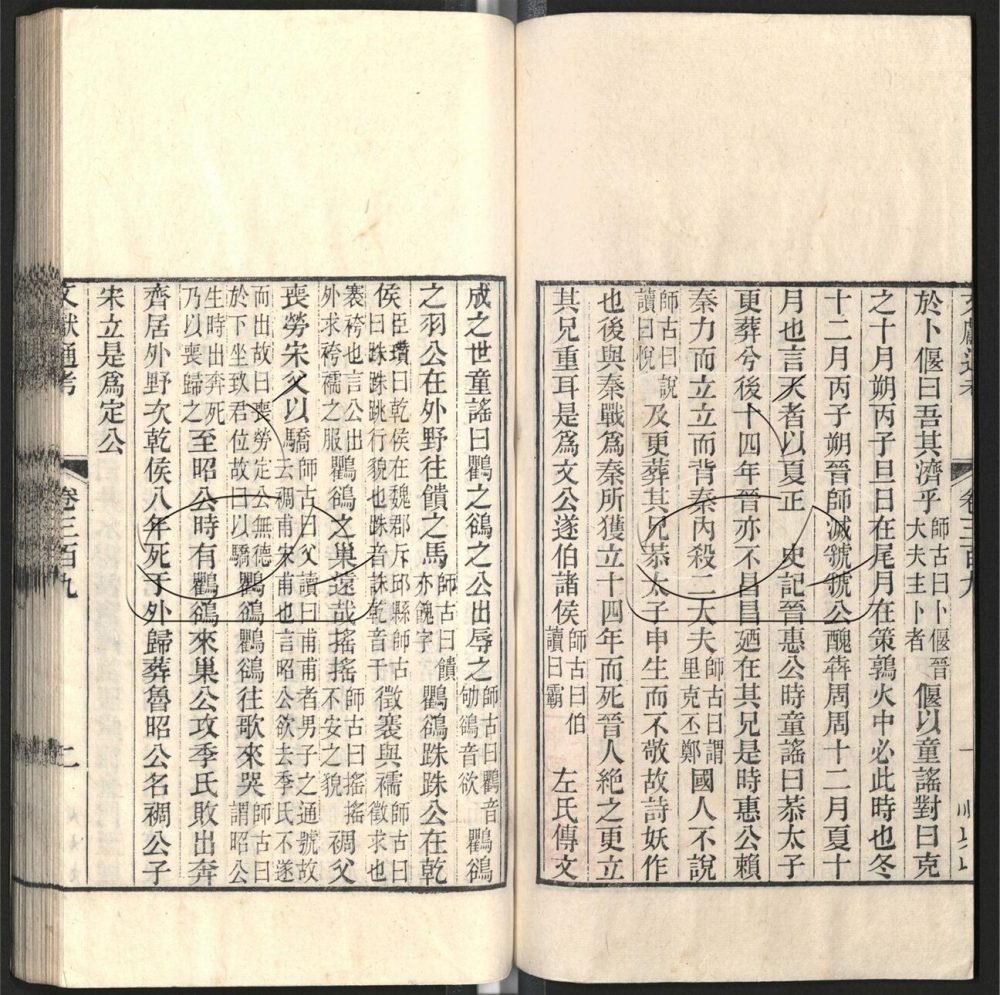 卷三百九
於卜偃曰吾其濟乎師古曰卜偃晉大夫主卜者偃以童謠對曰克
之十月朔丙子旦日在尾月在策鶉火中必此時也冬
十二月丙子朔晉師滅虢虢公醜犇周周十二月夏十
月也言天者以夏正 史記晉惠公時童謠曰恭太子
更葬兮後十四年晉亦不昌昌廼在其兄是時惠公賴
秦力而立立而背秦內殺二大夫師古曰謂里克丕鄭國人不說
師古曰說讀曰悅及更葬其兄恭太子申生而不敬故詩妖作
也後與秦戰爲秦所獲立十四年而死晉人絶之更立
其兄重耳是爲文公遂伯諸侯師古曰伯讀曰霸 左氏傳文
成之世童謠曰鸜之鵒之公出辱之師古曰鸜音劬鵒音欲鸜鵒
之羽公在外野往饋之馬師古曰饋亦餽字鸜鵒跦跦公在乾
侯臣瓚曰乾侯在魏郡斥邱縣師古曰跦跦跳行貌也跦音誅乾音干徵褰與襦師古曰徵求也
褰袴也言公出外求袴襦之服鸜鵒之巢遠哉搖搖師古曰搖搖不安之貌裯父
喪勞宋父以驕師古曰父讀曰甫甫者男子之通號故去裯甫宋甫也言昭公欲去季氏不遂
而出故曰喪勞定公無德於下坐致君位故曰以驕鸜鵒鸜鵒往歌來哭師古曰謂昭公
生時出奔死乃以喪歸之至昭公時有鸜鵒來巢公攻季氏敗出奔
齊居外野次乾侯八年死于外歸葬魯昭公名裯公子
宋立是爲定公
文獻通考 卷三百九 二